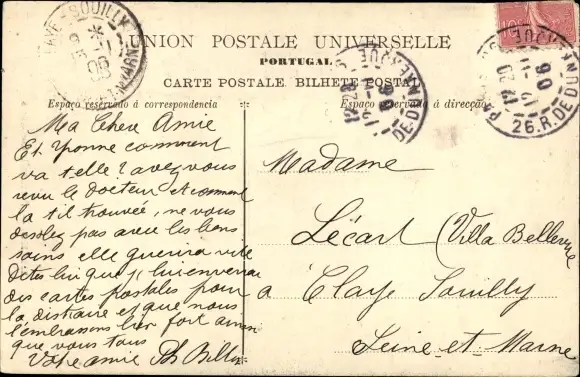 UNION POSTALE UNIVERSELLE
PORTUGAL
CARTE POSTALE BILHETE POSTAL
Espaço reservado á correspondencia
Espaço reservado á direcção
Ma Chere Amie
Et Yvonne comment
va t elle? avez vous
revu le docteur et comment
la til trouvée, ne vous
desolez pas avec les bons
soins elle guerira vite
Dites lui que j lui enverrai
des cartes postales pour
la distraire et que nous
l'embrassons bien fort ainsi
que vous tous
Votre amie
Madame
Lécart (Villa Bellevue
a Claye Souilly
Seine-et-Marne
CLAYE-SOUILLY
06
12 20
12 -11
06
26.R.DE DUNKERQUE
12 20
06
DE DUNKERQUE